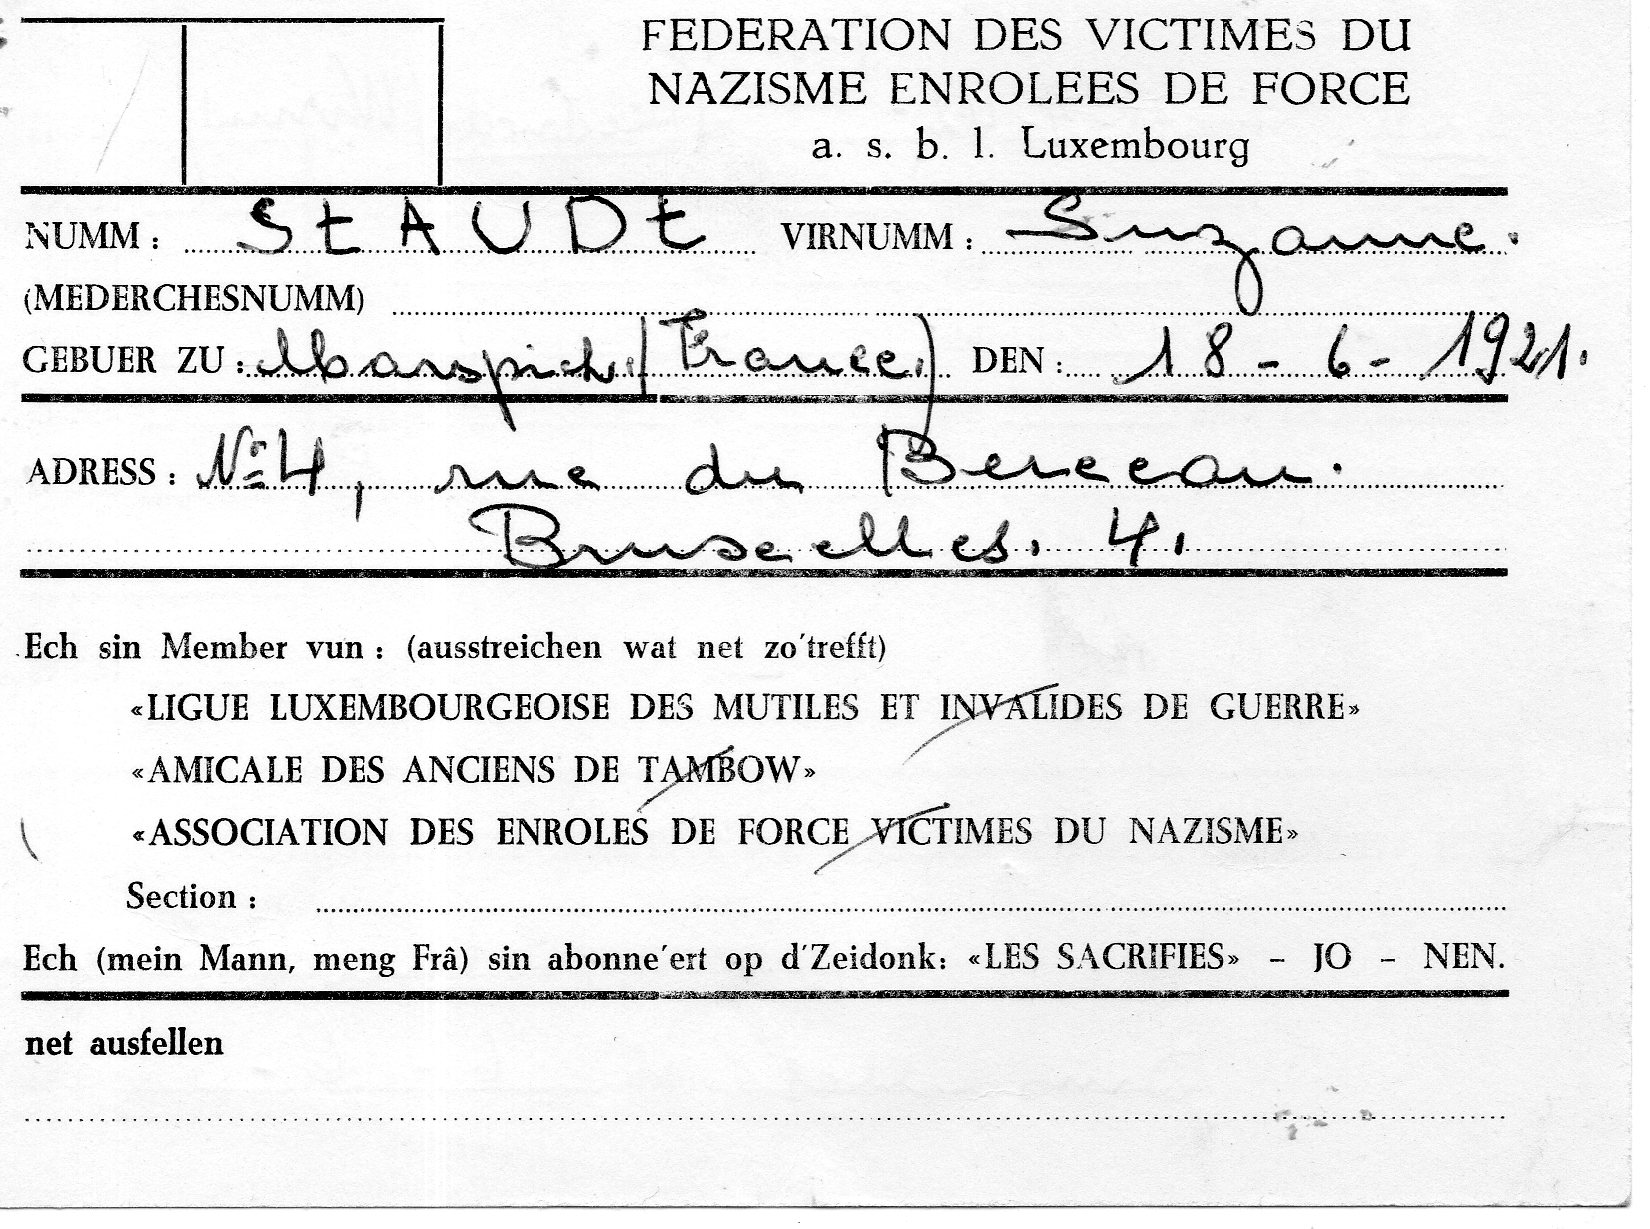 FEDERATION DES VICTIMES DU
NAZISME ENROLEES DE FORCE
a. s. b. l. Luxembourg
NUMM : StAUDt VIRNUMM : Suzanne.
(MEDERCHESNUMM)
GEBUER ZU : Marspich (France.) DEN : 18 - 6 - 1921.
ADRESS : No 4, rue du Berceau.
Bruxelles. 4.
Ech sin Member vun : (ausstreichen wat net zo'trefft)
«LIGUE LUXEMBOURGEOISE DES MUTILES ET INVALIDES DE GUERRE»
«AMICALE DES ANCIENS DE TAMBOW»
«ASSOCIATION DES ENROLES DE FORCE VICTIMES DU NAZISME»
Section :
Ech (mein Mann, meng Frâ) sin abonne'ert op d'Zeidonk: «LES SACRIFIES» – JO – NEN.
net ausfellen